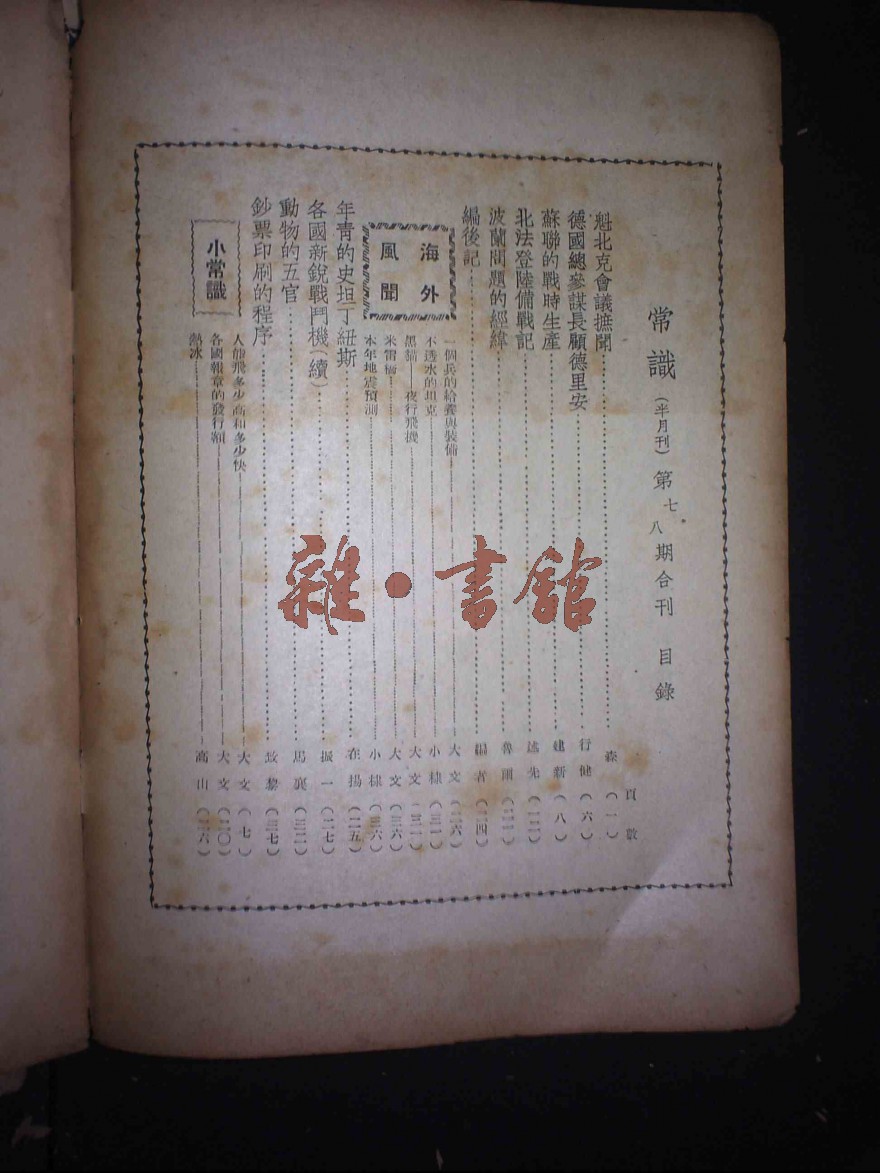 常識(半月刊)第七八期合刊 目錄
頁數
魁北克會議摭聞 森(一)
德國總參謀長顧德里安 行健(六)
蘇聯的戰時生產 建新(八)
北法登陸備戰記 述先(一二)
波蘭問題的經緯
編後記 編者(二四)
海外風聞
一個兵的給養與裝備 大文(二六)
不透水的坦克 小棣(三一)
黑貓——夜行飛機 大文
米雷橋 大文(三六)
本年地震預測 小棣(三六)
年青的史坦丁紐斯 在揚(二五)
各國新銳戰鬥機(續) 振一(二七)
動物的五官 馬襄(三二)
鈔票印刷的程序 政黎(三七)
小常識
人能飛多少高和多少快 大文(七)
各國報章的發行額 大文(二〇)
熱冰 高山(三六)
雜·書館